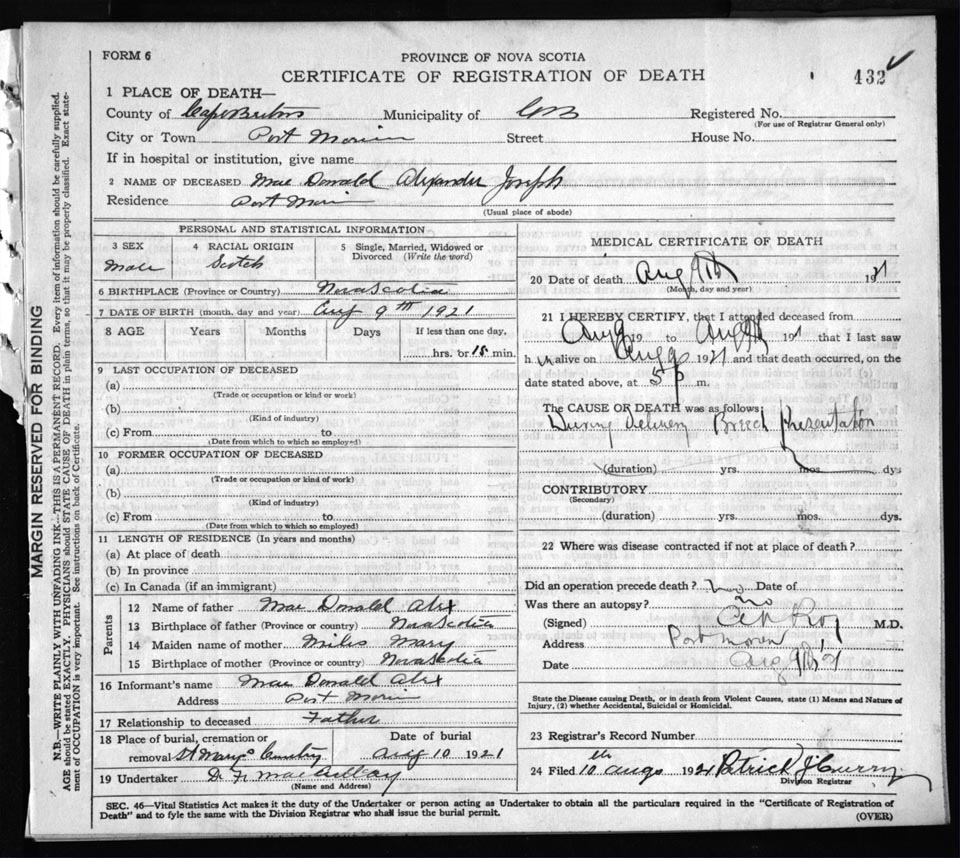 FORM 6
PROVINCE OF NOVA SCOTIA
CERTIFICATE OF REGISTRATION OF DEATH
432
1 PLACE OF DEATH—
County of Cape Breton Municipality of C B Registered No.
(For use of Registrar General only)
City or Town Port Morien Street House No.
If in hospital or institution, give name
2 NAME OF DECEASED Mac Donald Alexander Joseph
Residence Port Morien
(Usual place of abode)
PERSONAL AND STATISTICAL INFORMATION
3 SEX 4 RACIAL ORIGIN 5 Single, Married, Widowed or
Divorced (Write the word)
Male Scotch
6 BIRTHPLACE (Province or Country) Nova Scotia
7 DATE OF BIRTH (month, day and year) Aug 9th 1921
8 AGE Years Months Days If less than one day,
hrs. or 15 min.
9 LAST OCCUPATION OF DECEASED
(a)
(Trade or occupation or kind or work)
(b)
(Kind of industry)
(c) From to
(Date from which to which so employed)
10 FORMER OCCUPATION OF DECEASED
(a)
(Trade or occupation or kind of work)
(b)
(Kind of industry)
(c) From to
(Date from which to which so employed)
11 LENGTH OF RESIDENCE (In years and months)
(a) At place of death
(b) In province
(c) In Canada (if an immigrant)
Parents
12 Name of father Mac Donald Alex
13 Birthplace of father (Province or country) Nova Scotia
14 Maiden name of mother Miles Mary
15 Birthplace of mother (Province or country) Nova Scotia
16 Informant's name Mac Donald Alex
Address Port Morien
17 Relationship to deceased Father
18 Place of burial, cremation or Date of burial
removal St Marys Aug 10 1921
19 Undertaker
(Name and Address)
MEDICAL CERTIFICATE OF DEATH
20 Date of death Aug 9th 1921
(Month, day and year)
21 I HEREBY CERTIFY, that I attended deceased from
Aug 9 19 to Aug 9th 191 that I last saw
h m alive on Aug 9 1921 and that death occurred, on the
date stated above, at 5 p m.
The CAUSE OR DEATH was as follows:
During Delivery Breech Presentation
(duration) yrs. mos. dys
CONTRIBUTORY
(Secondary)
(duration) yrs. mos. dys.
22 Where was disease contracted if not at place of death?
Did an operation precede death? no Date of
Was there an autopsy? no
(Signed) Roy M.D.
Address Port Morien
Date Aug 9th 21
State the Disease causing Death, or in death from Violent Causes, state (1) Means and Nature of
Injury, (2) whether Accidental, Suicidal or Homicidal.
23 Registrar's Record Number
24 Filed 10th Aug 1921 Patrick J Curry
Division Registrar
SEC. 46—Vital Statistics Act makes it the duty of the Undertaker or person acting as Undertaker to obtain all the particulars required in the "Certificate of Registration of
Death" and to fyle the same with the Division Registrar who shall issue the burial permit.
(OVER)
MARGIN RESERVED FOR BINDING
N.B.—WRITE PLAINLY WITH UNFADING INK—THIS IS A PERMANENT RECORD. Every item of information should be carefully supplied.
AGE should be stated EXACTLY. PHYSICIANS should STATE CAUSE OF DEATH in plain terms, so that it may be properly classified. Exact state-
ment of OCCUPATION is very important. See instructions on back of Certificate.